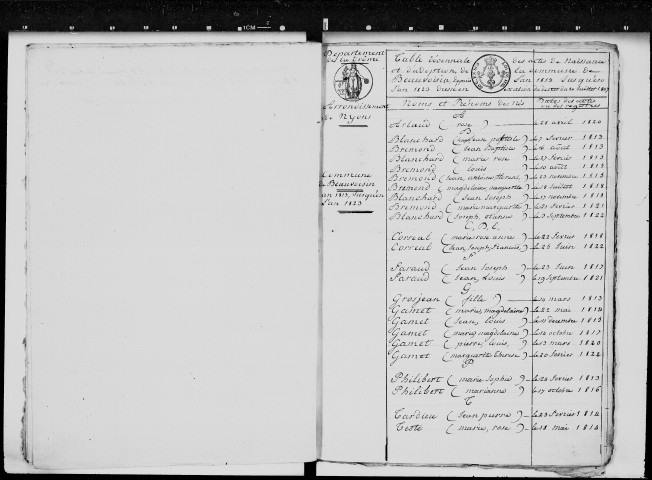 Département
de la Drôme
Arrondissement
de Nyons
Commune
de Beauvoisin
an 1813 jusqu'en
l'an 1823
Table décennale des actes de Naissance
et d'adoption, de la commune de
Beauvoisin, depuis l'an 1813 jusqu'en
l'an 1823
Noms et Prénoms des Nés Dates des actes
ou des registres
A
Arlaud ( rose ) le 28 avril 1820
B
Blanchard ( baptiste ) le 7 fevrier 1813
Bremond ( Jean Baptiste ) le 16 août 1813
Blanchard ( marie rose ) le 27 fevrier 1813
Bremond ( louis ) le 10 août 1813
Bremond ( Jean, antoine ) le 23 novembre 1813
Bremond ( magdelaine, marguerite ) le 18 Juillet 1818
Blanchard ( Jean Joseph ) le 17 novembre 1818
Bremond ( marie marguerite ) le 21 fevrier 1821
Blanchard ( Joseph, etienne ) le 3 Septembre 1822
C, D, E,
Correal ( marie rose anne ) le 22 fevrier 1818
Correal ( Jean, Joseph, francois ) le 26 Juin 1822
F
Faraud ( Jean Joseph ) le 23 Juin 1817
Faraud ( Jean, Louis ) le 19 Septembre 1821
G
Grosjean ( fille ) le 14 mars 1813
Gamet ( marie, magdelaine ) le 22 mai 1814
Gamet ( Jean, louis ) le 11 decembre 1815
Gamet ( marie, magdelaine ) le 14 octobre 1817
Gamet ( pierre, louis, ) le 13 mars 1820
Gamet ( marguerite therese ) le 20 fevrier 1822
P
Philibert ( marie sophie ) le 24 fevrier 1813
Philibert ( marianne ) le 17 octobre 1816
T
Tardieu ( Jean pierre ) le 23 fevrier 1814
Teste ( marie, rose ) le 18 mai 1814